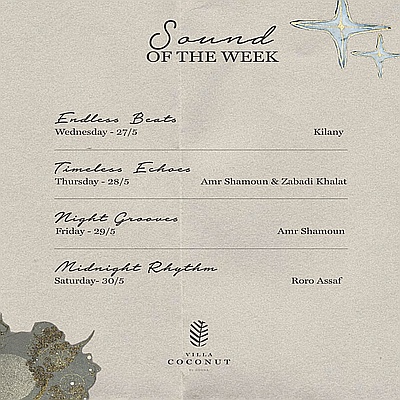 Sound
OF THE WEEK
Endless Beats
Wednesday - 27/5
Kilany
Timeless Echoes
Thursday - 28/5
Amr Shamoun & Zabadi Khalat
Night Grooves
Friday - 29/5
Amr Shamoun
Midnight Rhythm
Saturday- 30/5
Roro Assaf
VILLA
COCONUT